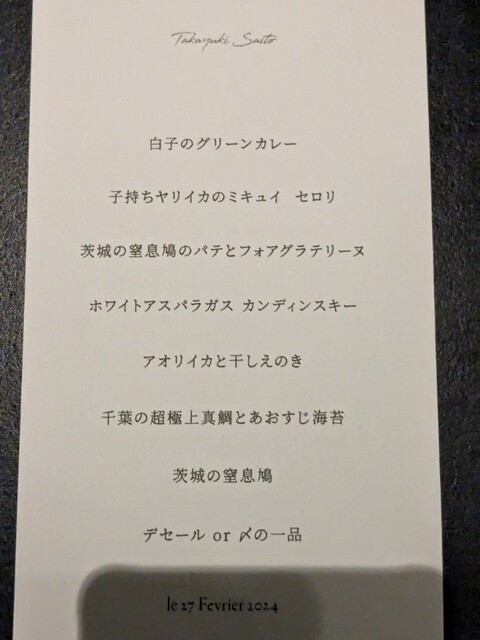 Takayuki Saito
白子のグリーンカレー
子持ちヤリイカのミキュイ セロリ
茨城の窒息鳩のパテとフォアグラテリーヌ
ホワイトアスパラガス カンディンスキー
アオリイカと干しえのき
千葉の超極上真鯛とあおすじ海苔
茨城の窒息鳩
デセール or 〆の一品
le 27 Fevrier 2024